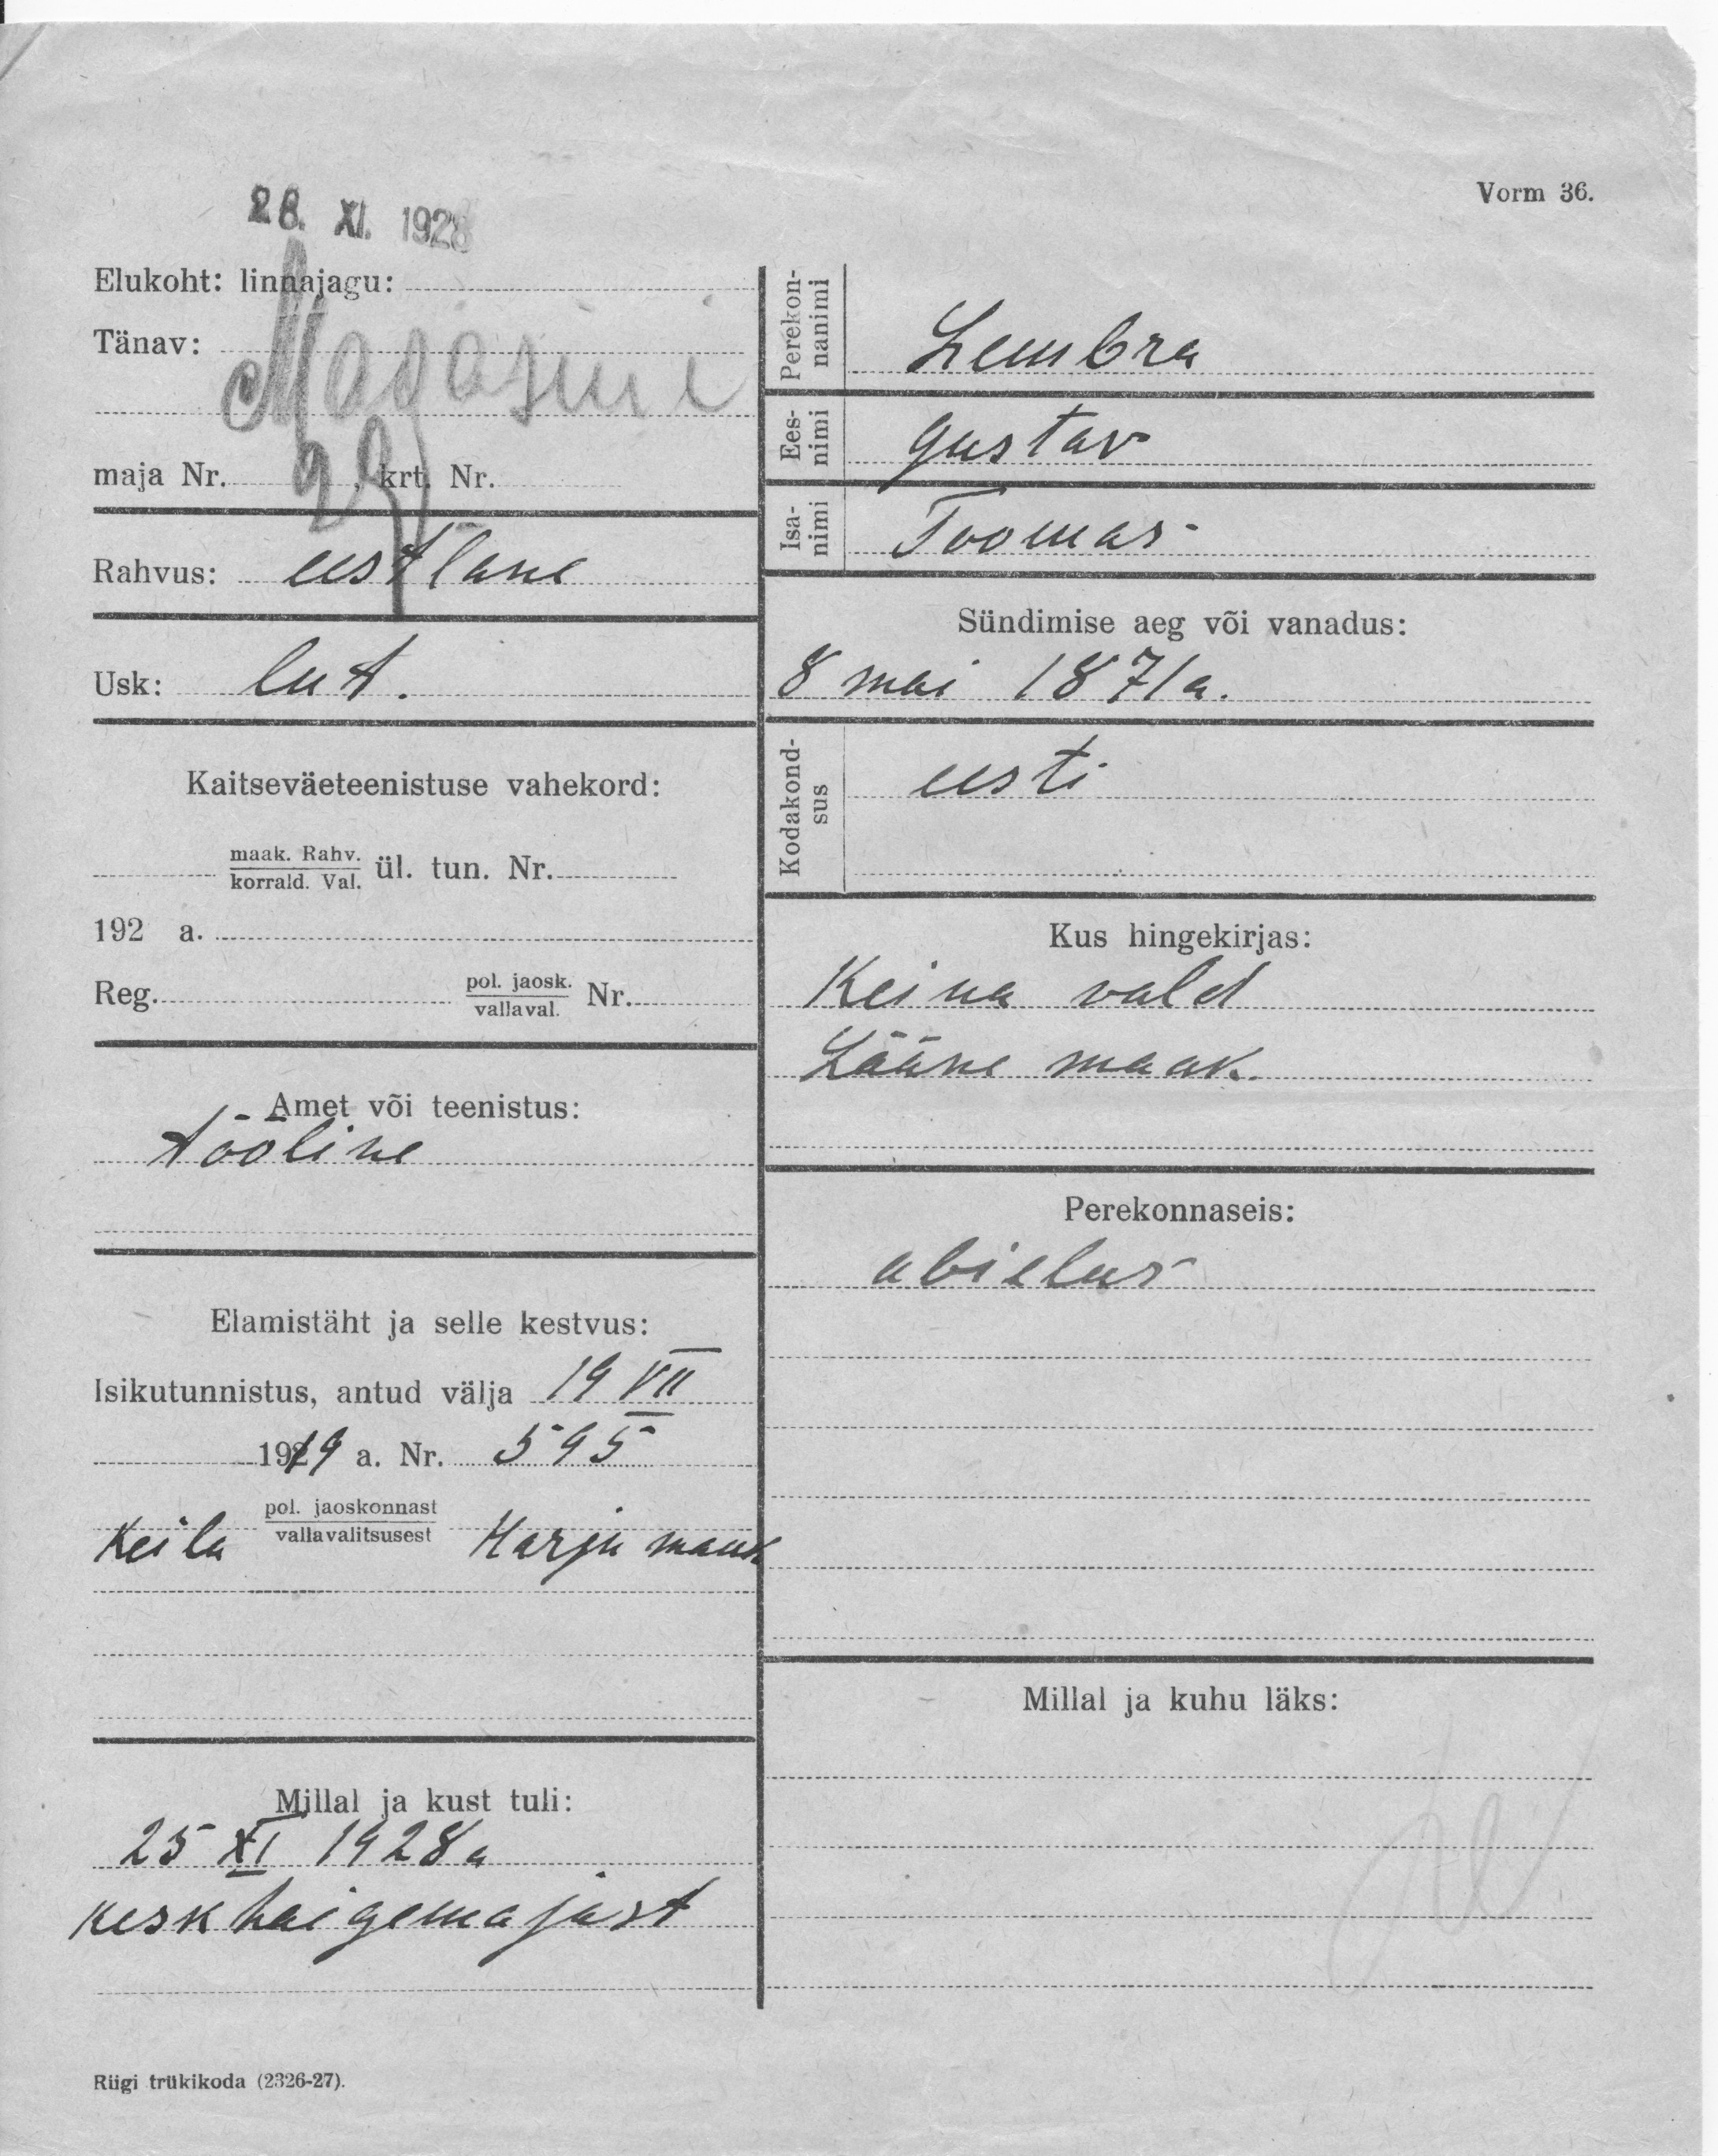 Vorm 36.
28. XI. 1928
Elukoht: linnajagu:
Tänav: Magasini
maja Nr. 29, krt. Nr.
Rahvus: eestlane
Usk: lut.
Kaitseväeteenistuse vahekord:
maak. Rahv.
korrald. Val. ül. tun. Nr.
192 a.
Reg. pol. jaosk.
vallaval. Nr.
Amet või teenistus:
tööline
Elamistäht ja selle kestvus:
Isikutunnistus, antud välja 19 VII
1919 a. Nr. 595
Keila pol. jaoskonnast
vallavalitsusest Harju maak
Millal ja kust tuli:
25 XI 1928 a
keskhaigemajast
Perekon-
nanimi Lembra
Ees-
nimi Gustav
Isa-
nimi Toomas
Sündimise aeg või vanadus:
8 mai 1871 a.
Kodakond-
sus eesti
Kus hingekirjas:
Keina vald
Lääne maak.
Perekonnaseis:
abielus
Millal ja kuhu läks:
Riigi trükikoda (2326-27).